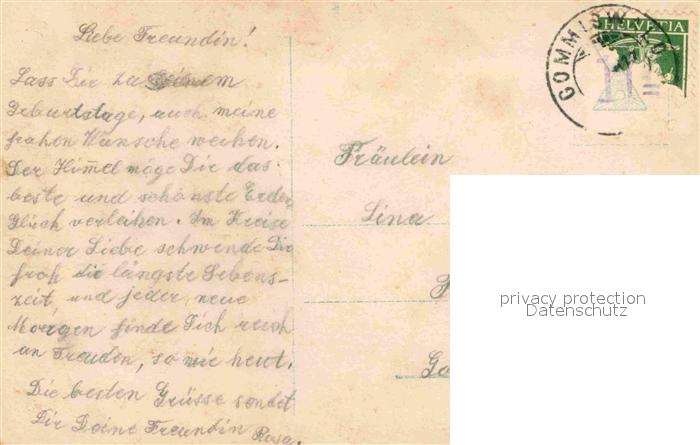 Liebe Freundin!
Lass Dir zu Deinem
Geburtstage, auch meine
frohen Wünsche weihen.
Der Him̅el möge Dir das
beste und schönste Erden
Glück verleihen. Im Kreise
Deiner Liebe schwinde Dir
froh die längste Lebens-
zeit, und jeder, neue
Morgen finde Dich reich
an Freuden, so wie heut.
Die besten Grüsse sendet
Dir Deine Freundin Rosa.
HELVETIA
GOMMISWALD
Fräulein
Lina
privacy protection
Datenschutz